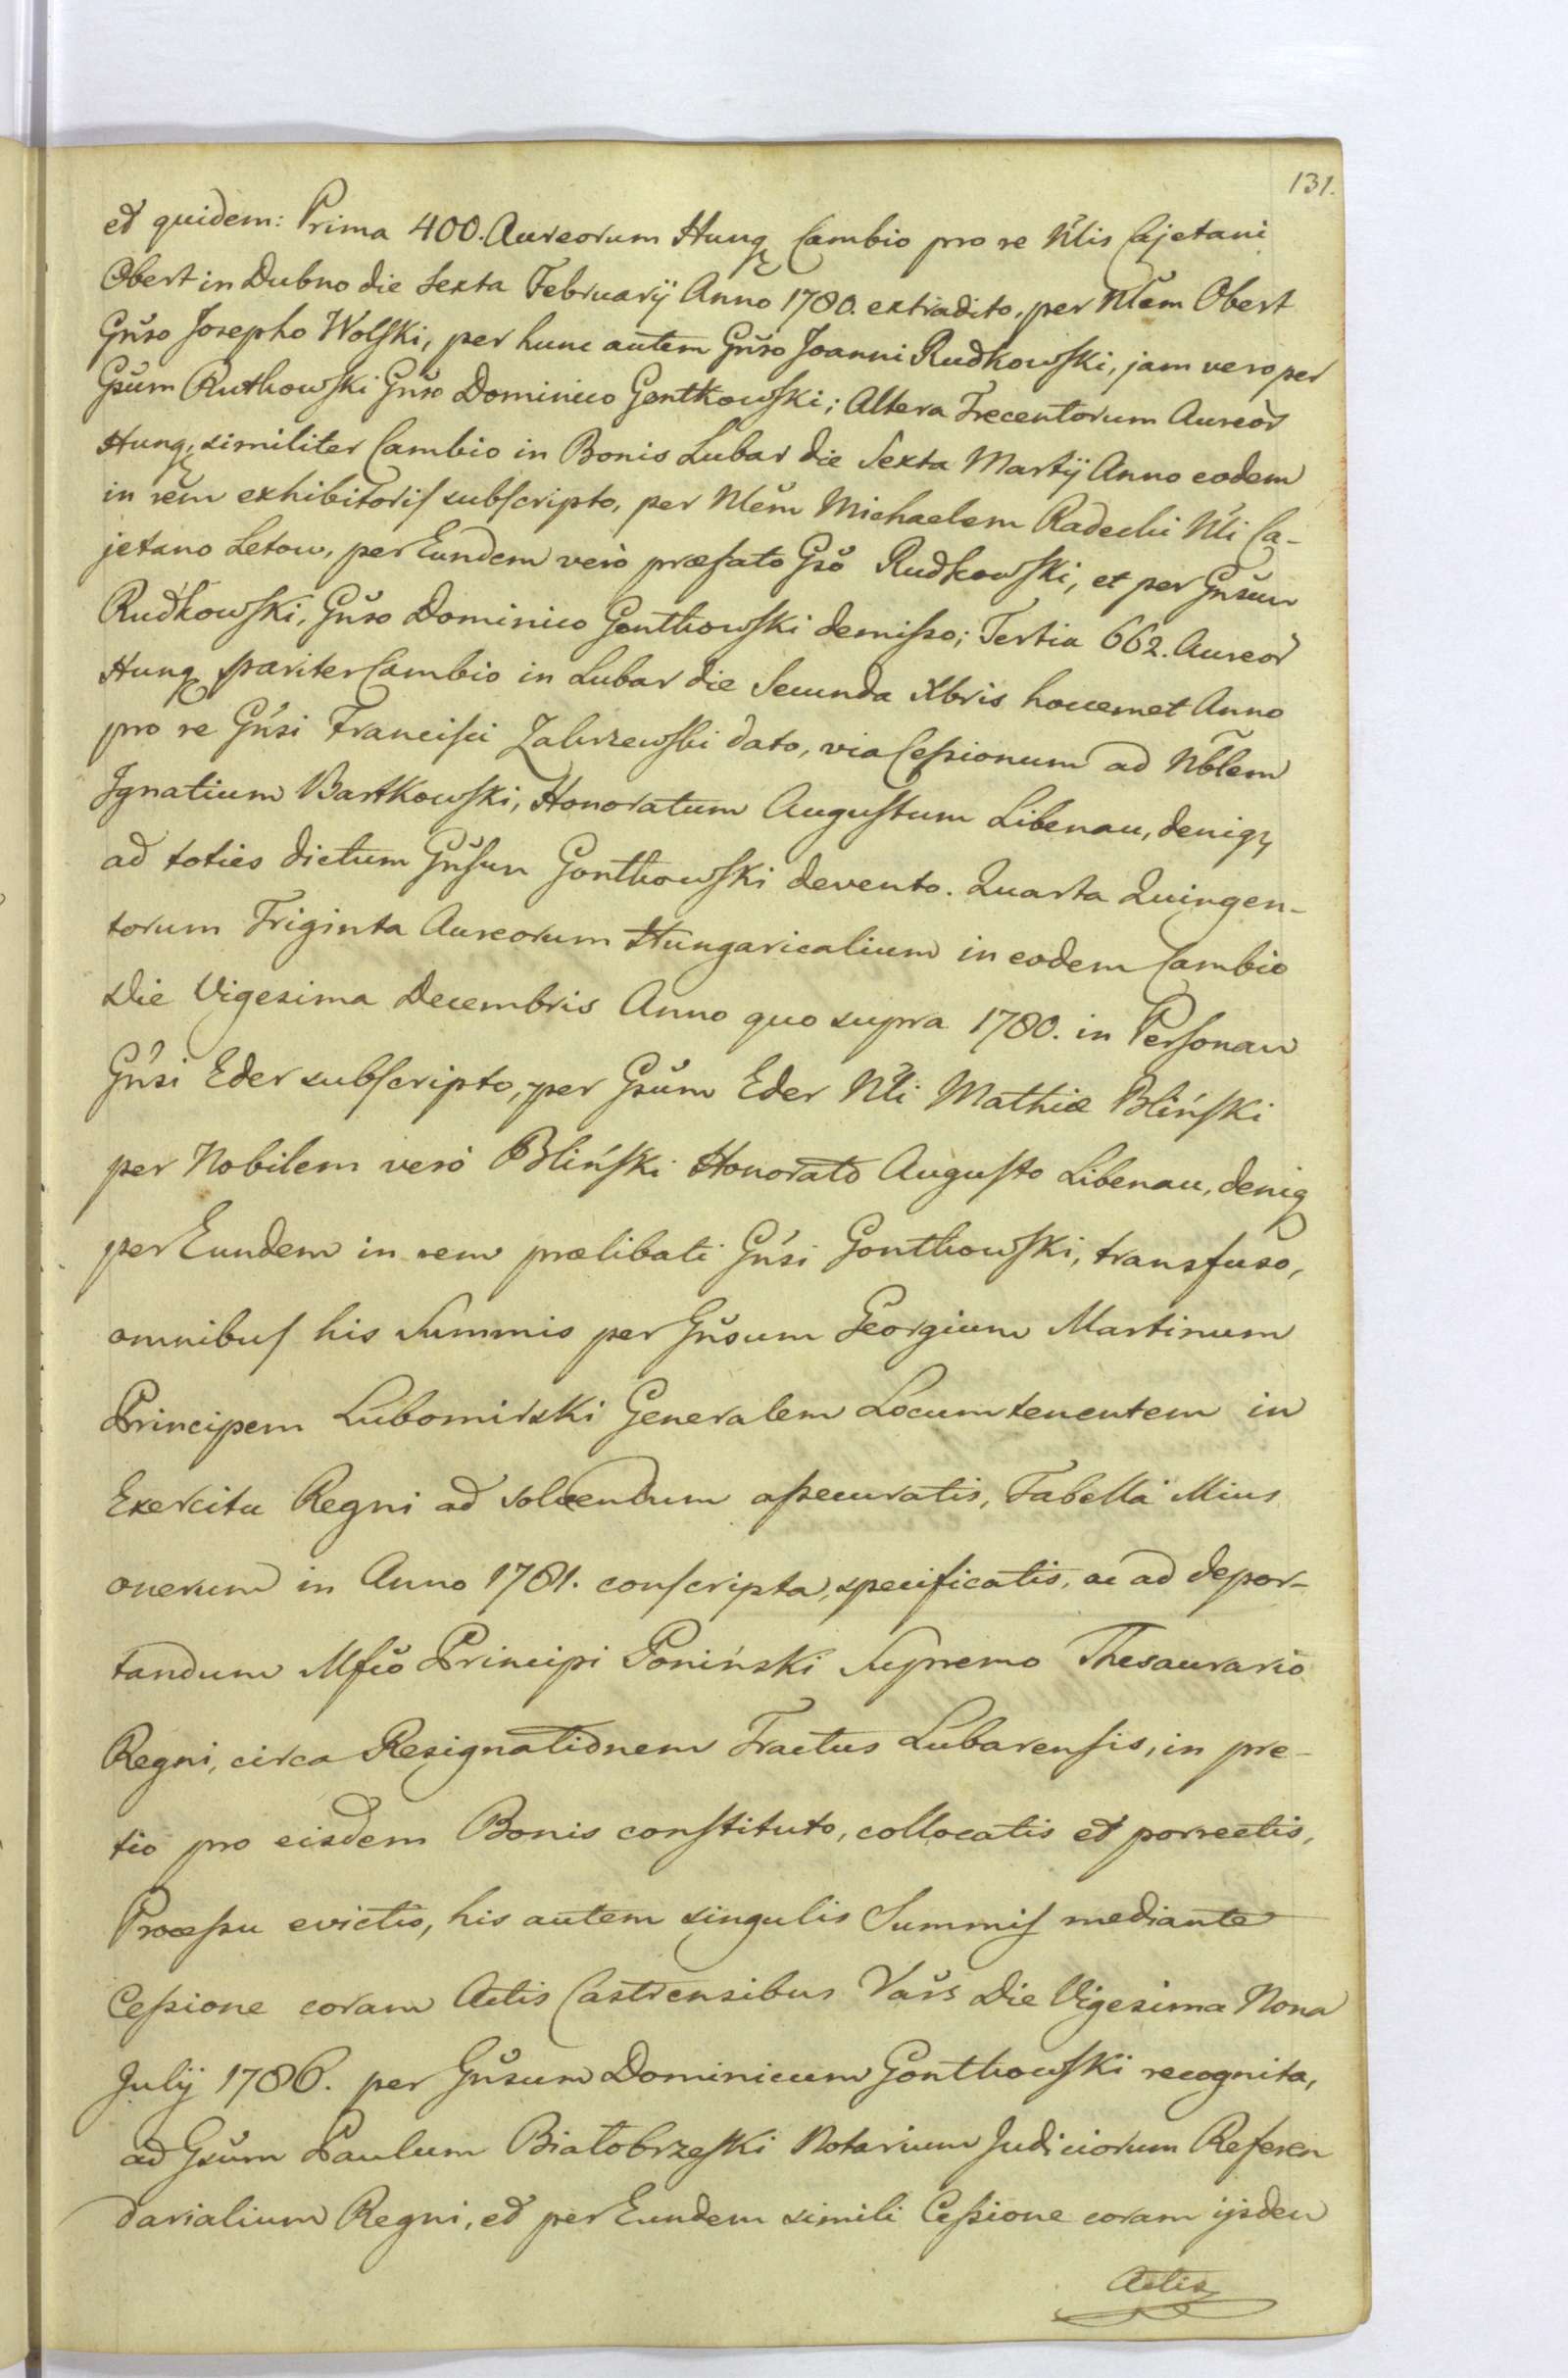 131.
et quidem: Prima 400. Aureorum Hungę Cambio pro re Nlis Cajetani
Obert in Dubno die Sexta Februarÿ Anno 1780. extradito, per Nlem Obert
Gnŭso Josepho Wolſki, per hunc autem Gnŭso Joanni Rudkowſki, jam vero per
Gsŭm Rutkowſki Gnŭso Dominico Gontkowſki; Altera Trecentorum Aureor̀
Hungę, similiter Cambio in Bonis Lubar die Sexta Martÿ Anno eodem
in rem exhibitoriſ subſcripto, per Nlem Michaelem Radecki Nli Ca-
jetano Letow, per Eundem verò præfato Gsŏ Rudkowſki, et per Gnsŭm
Rudkowſki, Gnŭso Dominico Gontkowſki demiſso; Tertia 662. Aureor̀
Hungę pariter Cambio in Lubar die Secunda Xbris hocemet Anno
pro re Gnŭsi Franciſci Zakrzewſki dato, via Ceſsionum ad Nb̃lem
Ignatium Bartkowſki, Honoratum Auguſtum Libenau, deniqȝ
ad toties dictum Gnŭſum Gontkowſki devento. Quarta Quingen-
torum Triginta Aureorum Hungaricalium in eodem Cambio
Die Vigesima Decembris Anno quo supra 1780. in Perſonam
Gnŭsi Eder subſcripto, per Gsŭm Eder Nli Mathiæ Blińſki
per Nobilem verò Blińſki Honorato Auguſto Libenau, deniq
per Eundem in rem prælibati Gnŭsi Gontkowſki, transfuso,
omnibuſ his Summis per Gnŭsum Georgium Martinum
Principem Lubomirski Generalem Locumtenentem in
Exercitu Regni ad solvendum aſsecuratis, Tabella Mius
onerum in Anno 1781. conſcripta, specificatis, ac ad depor-
tandum Mfcŏ Principi Poniński Supremo Thesaurario
Regni, circa Resignationem Tractus Lubarenſis, in pre-
tio pro eisdem Bonis conſtituto, collocatis et porrectis,
Proceſsu evictis, his autem singulis Summiſ mediante
Ceſsione coram Actis Castrensibus Vars Die Vigesima Nona
Julÿ 1786. per Gnŭsum Dominicum Gontkowſki recognita,
ad Gsŭm Paulum Białobrzeſki Notarium Judiciorum Referen
darialium Regni, et per Eundem simili Ceſsione coram ÿsdem
Actis